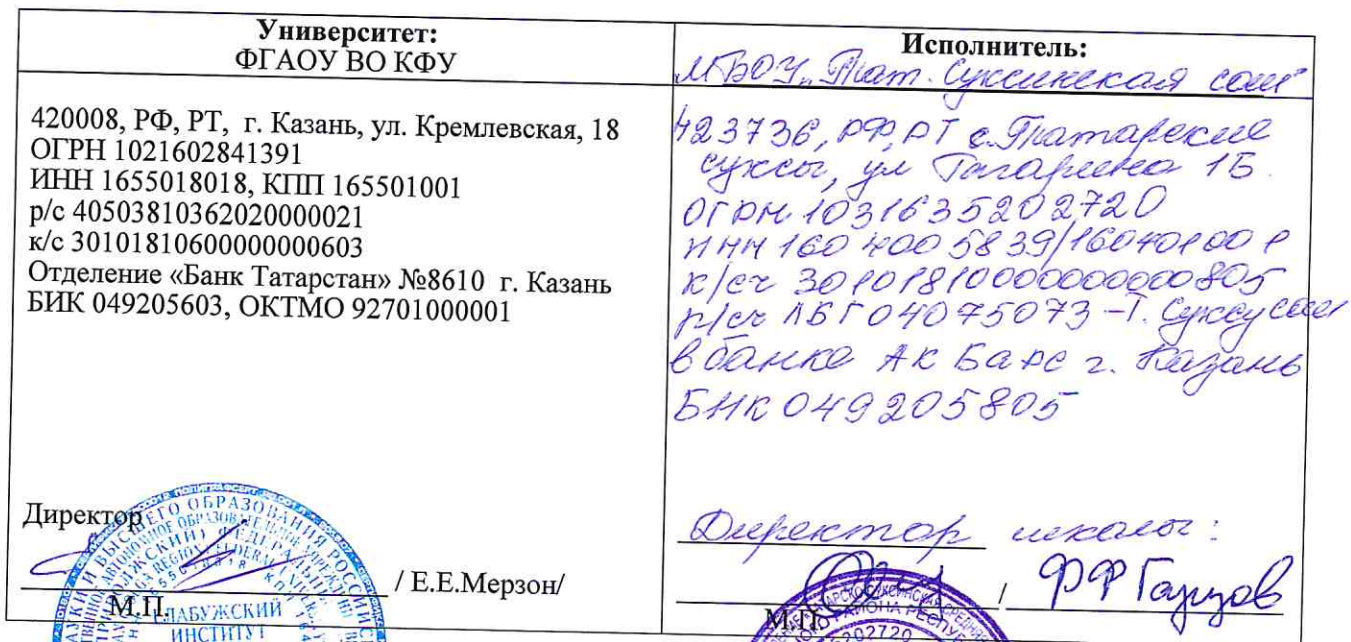 Университет:
ФГАОУ ВО КФУ
420008, РФ, РТ, г. Казань, ул. Кремлевская, 18
ОГРН 1021602841391
ИНН 1655018018, КПП 165501001
р/с 40503810362020000021
к/с 30101810600000000603
Отделение «Банк Татарстан» №8610 г. Казань
БИК 049205603, ОКТМО 92701000001
Директор
/ Е.Е.Мерзон/
М.П.
ЕЛАБУЖСКИЙ
ИНСТИТУТ
Исполнитель:
МБОУ "Тат. Суксинская сош"
423736, РФ, РТ с. Татарские
суксы, ул Гагарина 1Б.
ОГРН 1031635202720
ИНН 1604005839/160401001
к/сч 30101810000000000805
р/сч ЛБГ04075073-Т. Суксу сош
в банке Ак Барс г. Казань
БИК 049205805
Директор школы:
/ ФФ
М.П.